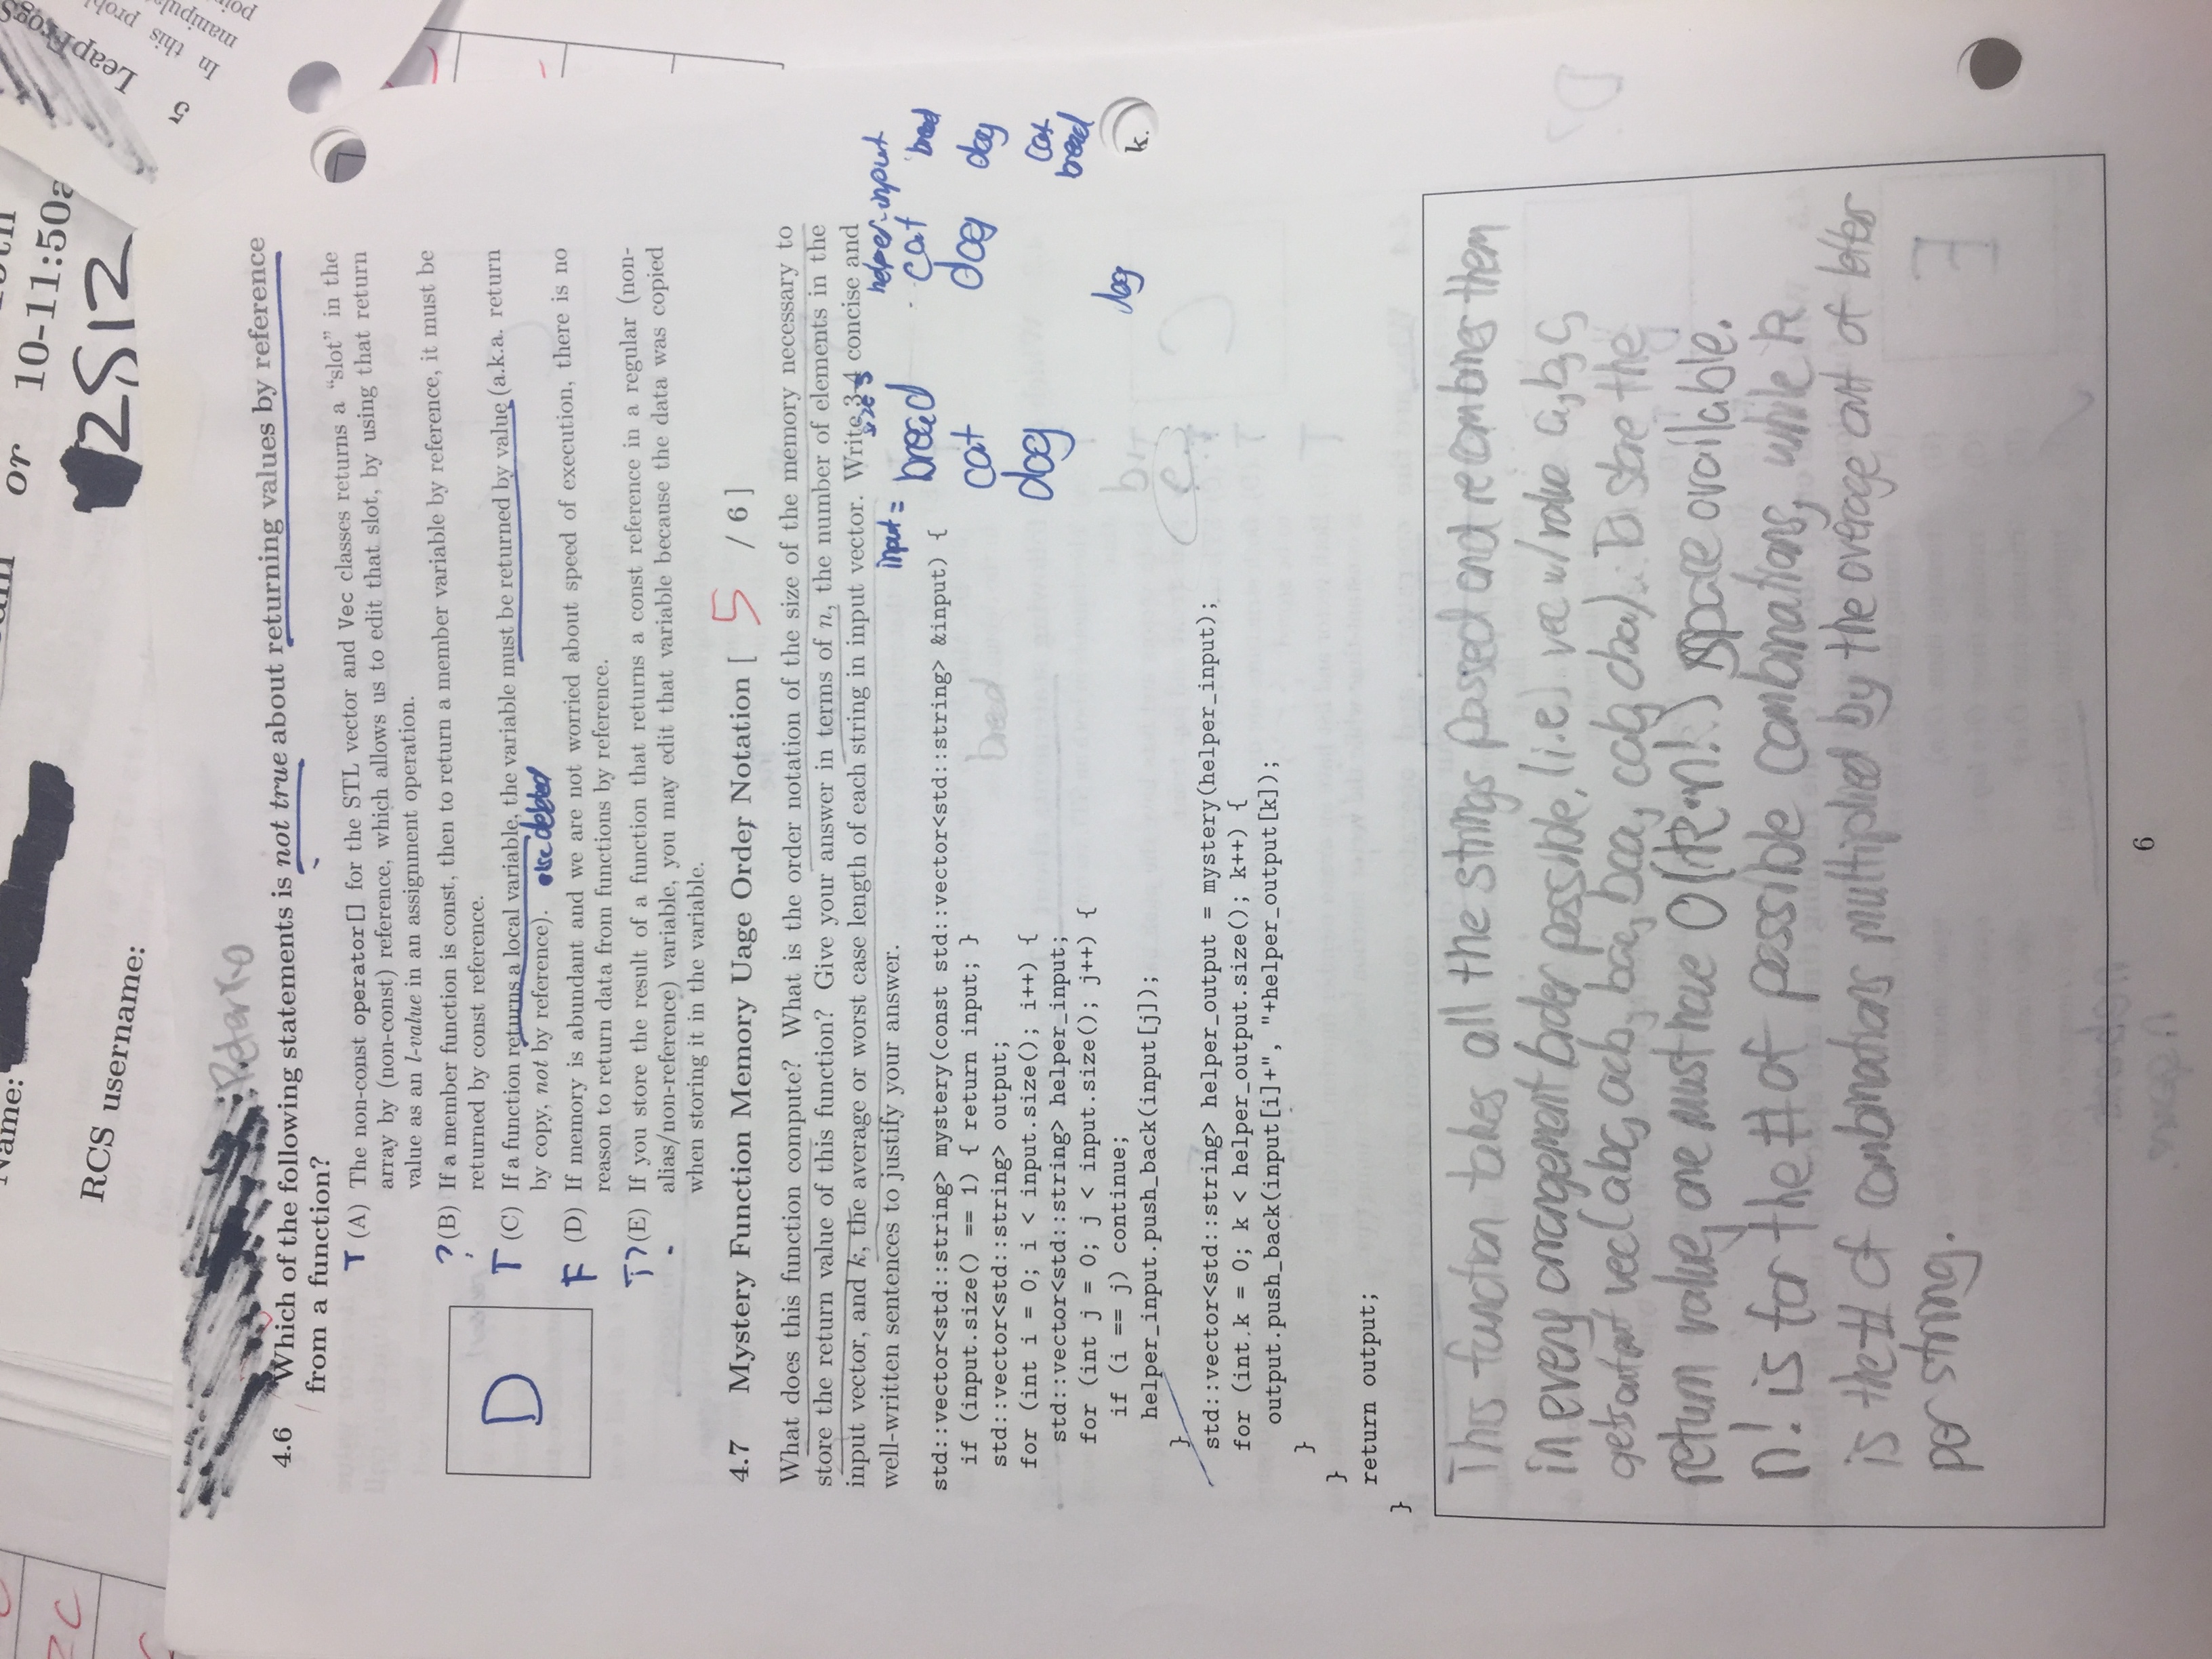 Name:
or 10-11:50a
RCS username:
2S12
5 LeapFrogs
In this probl
manipula
poin
Peterko
4.6 Which of the following statements is not true about returning values by reference
from a function?
T (A) The non-const operator[] for the STL vector and Vec classes returns a “slot” in the
array by (non-const) reference, which allows us to edit that slot, by using that return
value as an l-value in an assignment operation.
? (B) If a member function is const, then to return a member variable by reference, it must be
returned by const reference.
D
T (C) If a function returns a local variable, the variable must be returned by value (a.k.a. return
by copy, not by reference). else deleted
F (D) If memory is abundant and we are not worried about speed of execution, there is no
reason to return data from functions by reference.
T? (E) If you store the result of a function that returns a const reference in a regular (non-
alias/non-reference) variable, you may edit that variable because the data was copied
when storing it in the variable.
4.7 Mystery Function Memory Uage Order Notation [ 5 / 6 ]
What does this function compute? What is the order notation of the size of the memory necessary to
store the return value of this function? Give your answer in terms of n, the number of elements in the
input vector, and k, the average or worst case length of each string in input vector. Write 3-4 concise and
well-written sentences to justify your answer.
size 3
input = bread cat dog
helper-input
cat dog
bread
dog
cat
bread
dog
k.
std::vector<std::string> mystery(const std::vector<std::string> &input) {
if (input.size() == 1) { return input; }
std::vector<std::string> output;
for (int i = 0; i < input.size(); i++) {
std::vector<std::string> helper_input;
for (int j = 0; j < input.size(); j++) {
if (i == j) continue;
helper_input.push_back(input[j]);
}
std::vector<std::string> helper_output = mystery(helper_input);
for (int k = 0; k < helper_output.size(); k++) {
output.push_back(input[i]+", "+helper_output[k]);
}
}
return output;
}
This function takes all the strings passed and recombines them
in every arrangement/order possible, (i.e) vec w/ value a,b,c,
gets output vec(abc, acb, bac, bca, cab, cba). To store the
return value, one must have O(k·n!) space available.
n! is for the # of possible combinations, while k
is the # of combinations multiplied by the average amt of letters
per string.
6